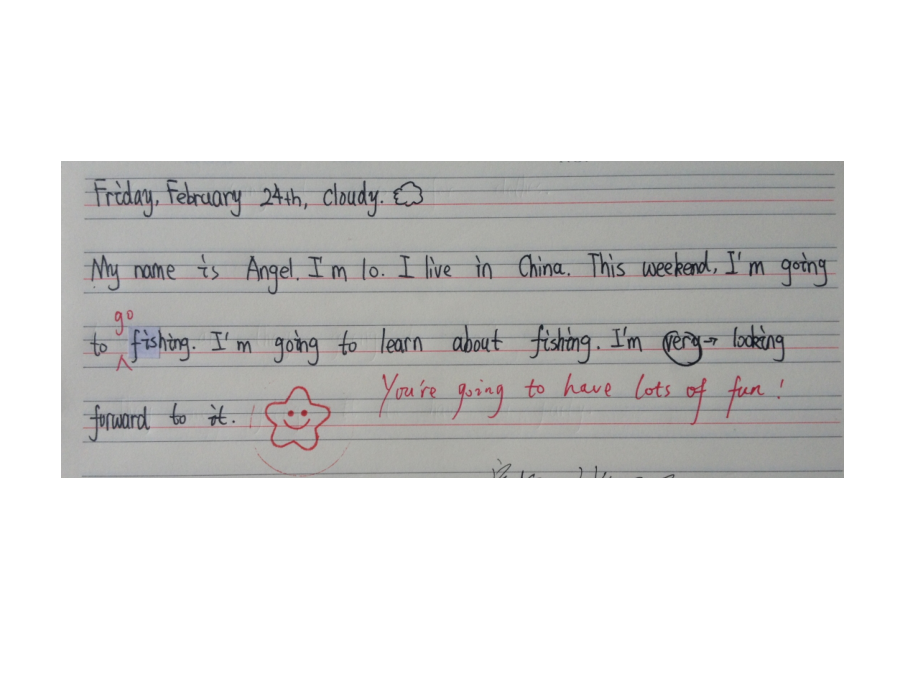 Friday, February 24th, cloudy.
My name is Angel. I'm 10. I live in China. This weekend, I'm going
go
to fishing. I'm going to learn about fishing. I'm very→ looking
You're going to have lots of fun!
forward to it.